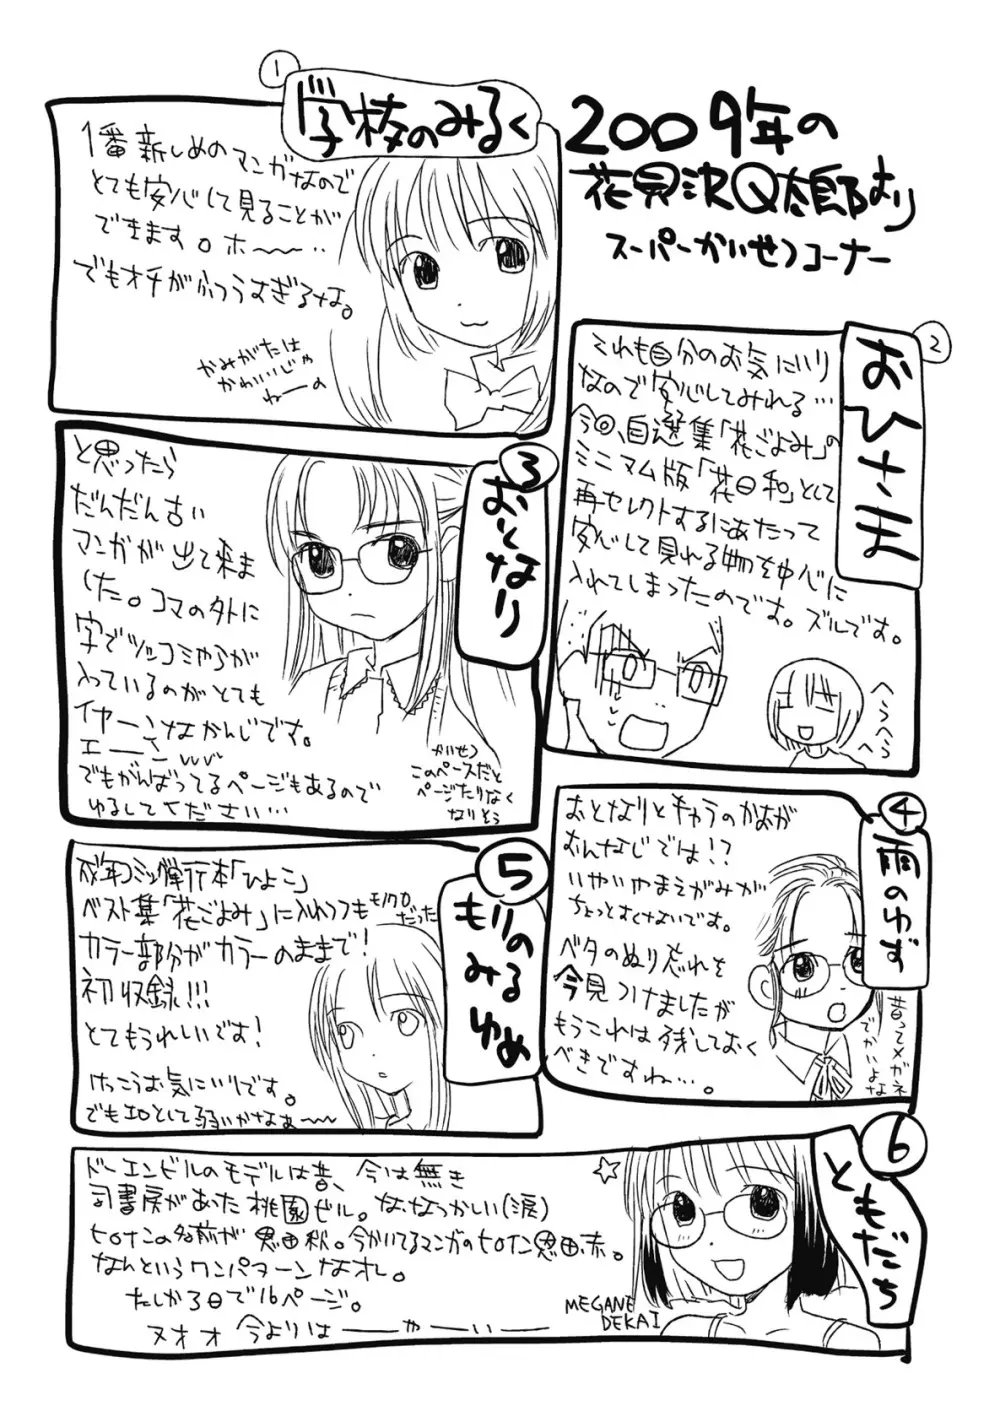 2009年の
花見沢Q太郎より
スーパーかいせつコーナー
1
学校のみるく
1番新しめのマンガなので
とても安心して見ることが
できます。ホ〜〜‥
でもオチがふつうすぎるな。
かみがたは
かわいいじゃ
ねーの
2
おひさま
これも自分のお気にいり
なので安心してみれる…
今回、自選集「花ごよみ」の
ミニマム版「花日和」として
再セレクトするにあたって
安心して見れる物を中心に
入れてしまったのです。ズルです。
へらへら
へ
3
おとなり
と思ったら
だんだん古い
マンガが出て来ま
した。コマの外に
字でツッコミやらが
入っているのがとても
イヤーンなかんじです。
エーーン
でもがんばってるページもあるので
ゆるしてください…
かいせつ
このペースだと
ページたりなく
なりそう
4
雨のゆず
おとなりとキャラのかおが
おんなじでは!?
いやいやまえがみが
ちょっとすくないです。
ベタのぬり忘れを
今見つけましたが
もうこれは残しておく
べきですね…。
昔ってメガネ
でかいよな
5
もりの
みるゆめ
成年コミック単行本「ひよこ」
ベスト集「花ごよみ」に入れつつもモノクロ
だった
カラー部分がカラーのままで!
初収録!!!
とてもうれしいです!
けっこうお気にいりです。
でもエロとして弱いかなぁ〜〜
6
ともだち
ドーエンビルのモデルは昔、今は無き
司書房があった桃園ビル。ななつかしい(涙)
ヒロインの名前が恩田秋。今かいてるマンガのヒロイン恩田赤。
なんというワンパターンなオレ。
たしか3日で16ページ。
ヌオオ 今よりはーーやーいーー
MEGANE
DEKAI